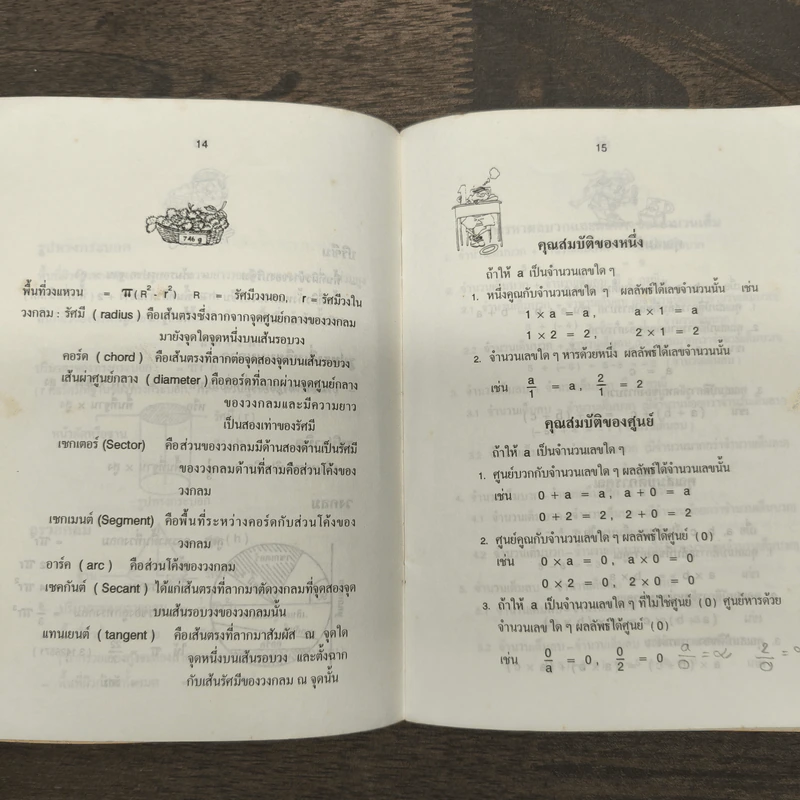 14
746 g
พื้นที่วงแหวน = π(R² - r²) R = รัศมีวงนอก, r = รัศมีวงใน
วงกลม : รัศมี ( radius ) คือเส้นตรงซึ่งลากจากจุดศูนย์กลางของวงกลม
มายังจุดใดจุดหนึ่งบนเส้นรอบวง
คอร์ด ( chord ) คือเส้นตรงที่ลากต่อจุดสองจุดบนเส้นรอบวง
เส้นผ่าศูนย์กลาง ( diameter ) คือคอร์ดที่ลากผ่านจุดศูนย์กลาง
ของวงกลมและมีความยาว
เป็นสองเท่าของรัศมี
เซกเตอร์ (Sector) คือส่วนของวงกลมมีด้านสองด้านเป็นรัศมี
ของวงกลมด้านที่สามคือส่วนโค้งของ
วงกลม
เซกเมนต์ (Segment) คือพื้นที่ระหว่างคอร์ดกับส่วนโค้งของ
วงกลม
อาร์ค ( arc ) คือส่วนโค้งของวงกลม
เซคกันต์ ( Secant ) ได้แก่เส้นตรงที่ลากมาตัดวงกลมที่จุดสองจุด
บนเส้นรอบวงของวงกลมนั้น
แทนเยนต์ ( tangent ) คือเส้นตรงที่ลากมาสัมผัส ณ จุดใด
จุดหนึ่งบนเส้นรอบวง และตั้งฉาก
กับเส้นรัศมีของวงกลม ณ จุดนั้น
15
คุณสมบัติของหนึ่ง
ถ้าให้ a เป็นจำนวนเลขใด ๆ
1. หนึ่งคูณกับจำนวนเลขใด ๆ ผลลัพธ์ได้เลขจำนวนนั้น เช่น
1 × a = a, a × 1 = a
1 × 2 = 2, 2 × 1 = 2
2. จำนวนเลขใด ๆ หารด้วยหนึ่ง ผลลัพธ์ได้เลขจำนวนนั้น
เช่น a/1 = a, 2/1 = 2
คุณสมบัติของศูนย์
ถ้าให้ a เป็นจำนวนเลขใด ๆ
1. ศูนย์บวกกับจำนวนเลขใด ๆ ผลลัพธ์ได้จำนวนเลขนั้น
เช่น 0 + a = a, a + 0 = a
0 + 2 = 2, 2 + 0 = 2
2. ศูนย์คูณกับจำนวนเลขใด ๆ ผลลัพธ์ได้ศูนย์ (0)
เช่น 0 × a = 0, a × 0 = 0
0 × 2 = 0, 2 × 0 = 0
3. ถ้าให้ a เป็นจำนวนเลขใด ๆ ที่ไม่ใช่ศูนย์ (0) ศูนย์หารด้วย
จำนวนเลข ใด ๆ ผลลัพธ์ได้ศูนย์ (0)
เช่น 0/a = 0, 0/2 = 0 a/0 = ∝ 2/0 = ∝